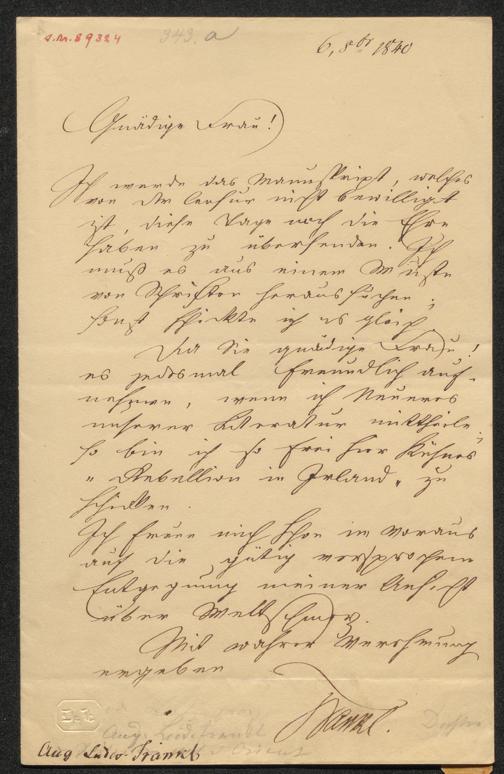 I.N. 89324
343. a
6, 8br 1840
Gnädige Frau!
Ich werde das Manuskript, welches
von der Censur nicht bewilligt
ist, diese Tage noch die Ehre
haben zu übersenden. Ich
muß es aus einem Wuste
von Schriften heraussuchen;
sonst schickte ich es gleich.
Da Sie gnädige Frau!
es jedesmal freundlich auf-
nehmen, wenn ich Neueres
unserer Literatur mittheile,
so bin ich so frei hier Kühnes
"Rebellion in Irland" zu
schicken.
Ich freue mich schon im Voraus
auf die gütig versprochene
Entgegnung meiner Ansicht
über Weltschmerz.
Mit wahrer Verehrung
ergeben
Frankl.
Aug. Ludw. Frankl